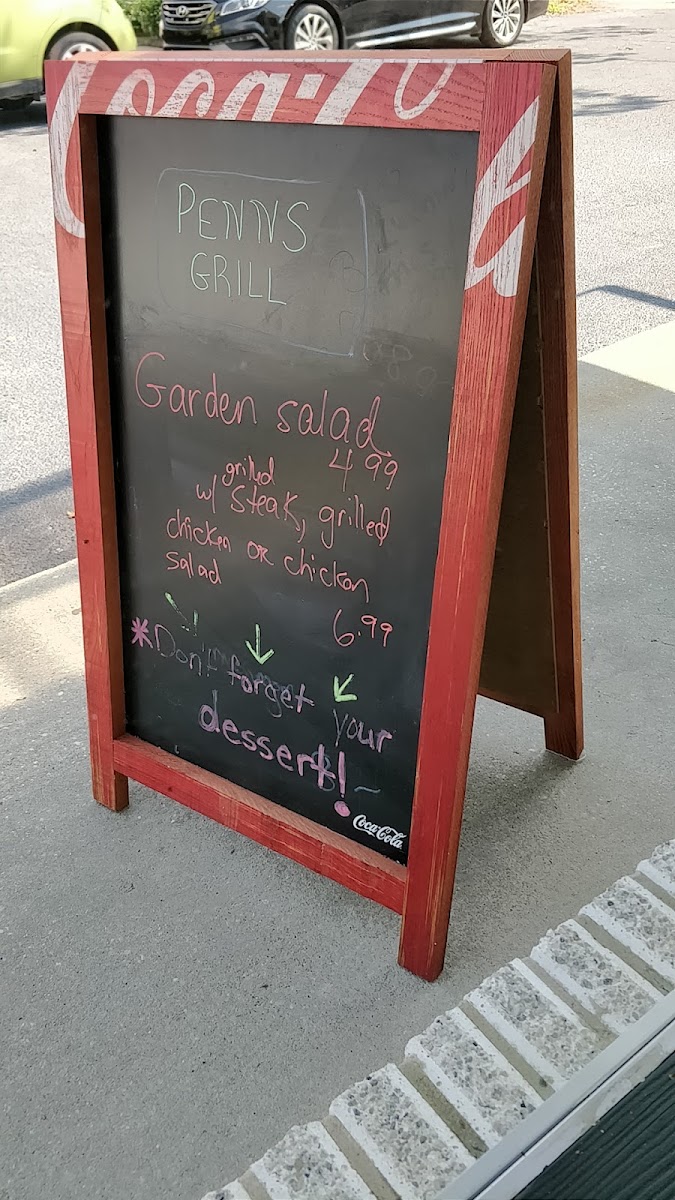 Coca-Cola
PENNS
GRILL
Garden salad
4.99
grilled
w/ steak, grilled
chicken or chicken
salad
6.99
*Don't forget your
dessert!
Coca-Cola